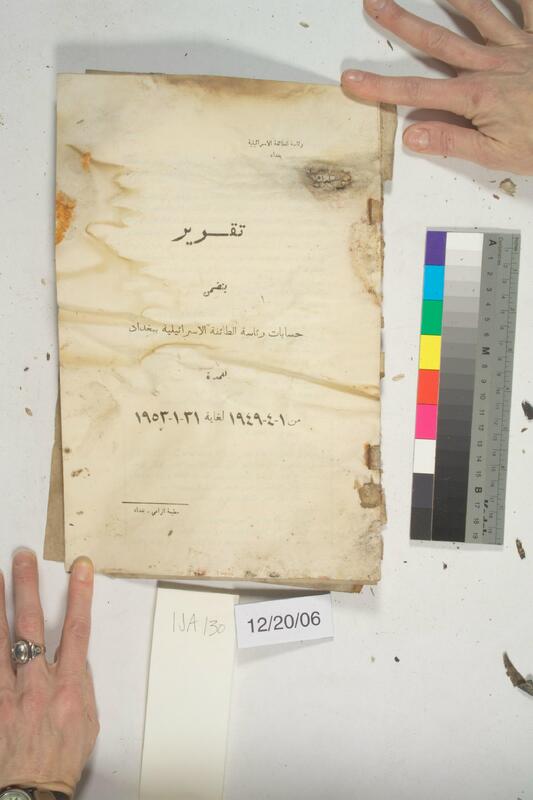 رئاسة الطائفة الاسرائيلية
بغداد
تقـــريـر
يتضمن
حسابات رئاسة الطائفة الاسرائيلية ببغداد
للمدة
من ١-٤-١٩٤٩ لغاية ٣١-١-١٩٥٣
مطبعة الراعي - بغداد
IJA 130
12/20/06
A
M
B
1
2
3
4
5
6
7
8
9
10
11
12
13
14
15
17
18
19